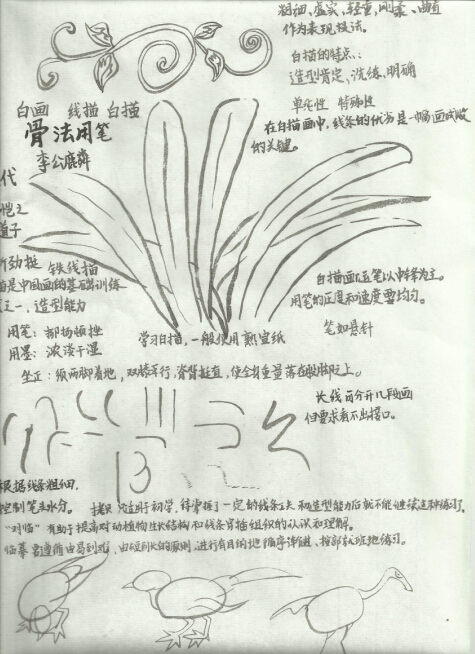 粗细、虚实、轻重、刚柔、曲直
作为表现技法。
白描的特点:
造型肯定、洗练、明确
单纯性 特殊性
在白描画中,线条的优劣是一幅画成败
的关键。
白画 线描 白描
骨法用笔
李公麟
代
恺之
道子
劲挺 铁线描
是中国画的基础训练
之一,造型能力
用笔:抑扬顿挫
用墨:浓淡干湿
学习白描,一般使用熟宣纸
白描画运笔以中锋为主。
用笔的压度和速度要均匀。
笔如悬针
坐正:须两脚着地,双膝平行,脊背挺直,使全身重量落在股脚之上。
长线可分开几段画
但要求看不出接口。
根据线条粗细,
控制笔头水分。
只适用于初学,待掌握了一定的线条工夫和造型能力后就不能继续这种练习了。
“对临”有助于提高对动植物生长结构和线条穿插组织的认识和理解。
临摹 遵循由易到难,由短到长的原则,进行有目的地循序渐进、按部就班地练习。